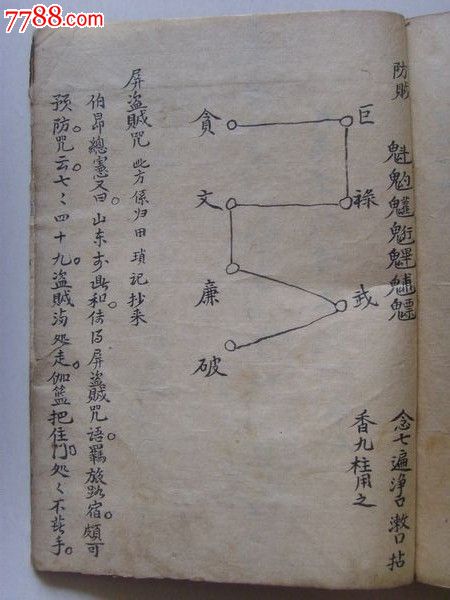 7788.com
防賊
魁𩲃䰱䰢魓𩳐魒
念七遍淨口漱口拈
香九柱用之
巨
祿
武
貪
文
廉
破
屏盜賊咒 此方係归田瑣記抄来
伯昂總憲又曰山东鼎和传得屏盜賊咒語羈旅路宿頗可
预防咒云七々四十九盜賊满处走伽籃把住门处々不手